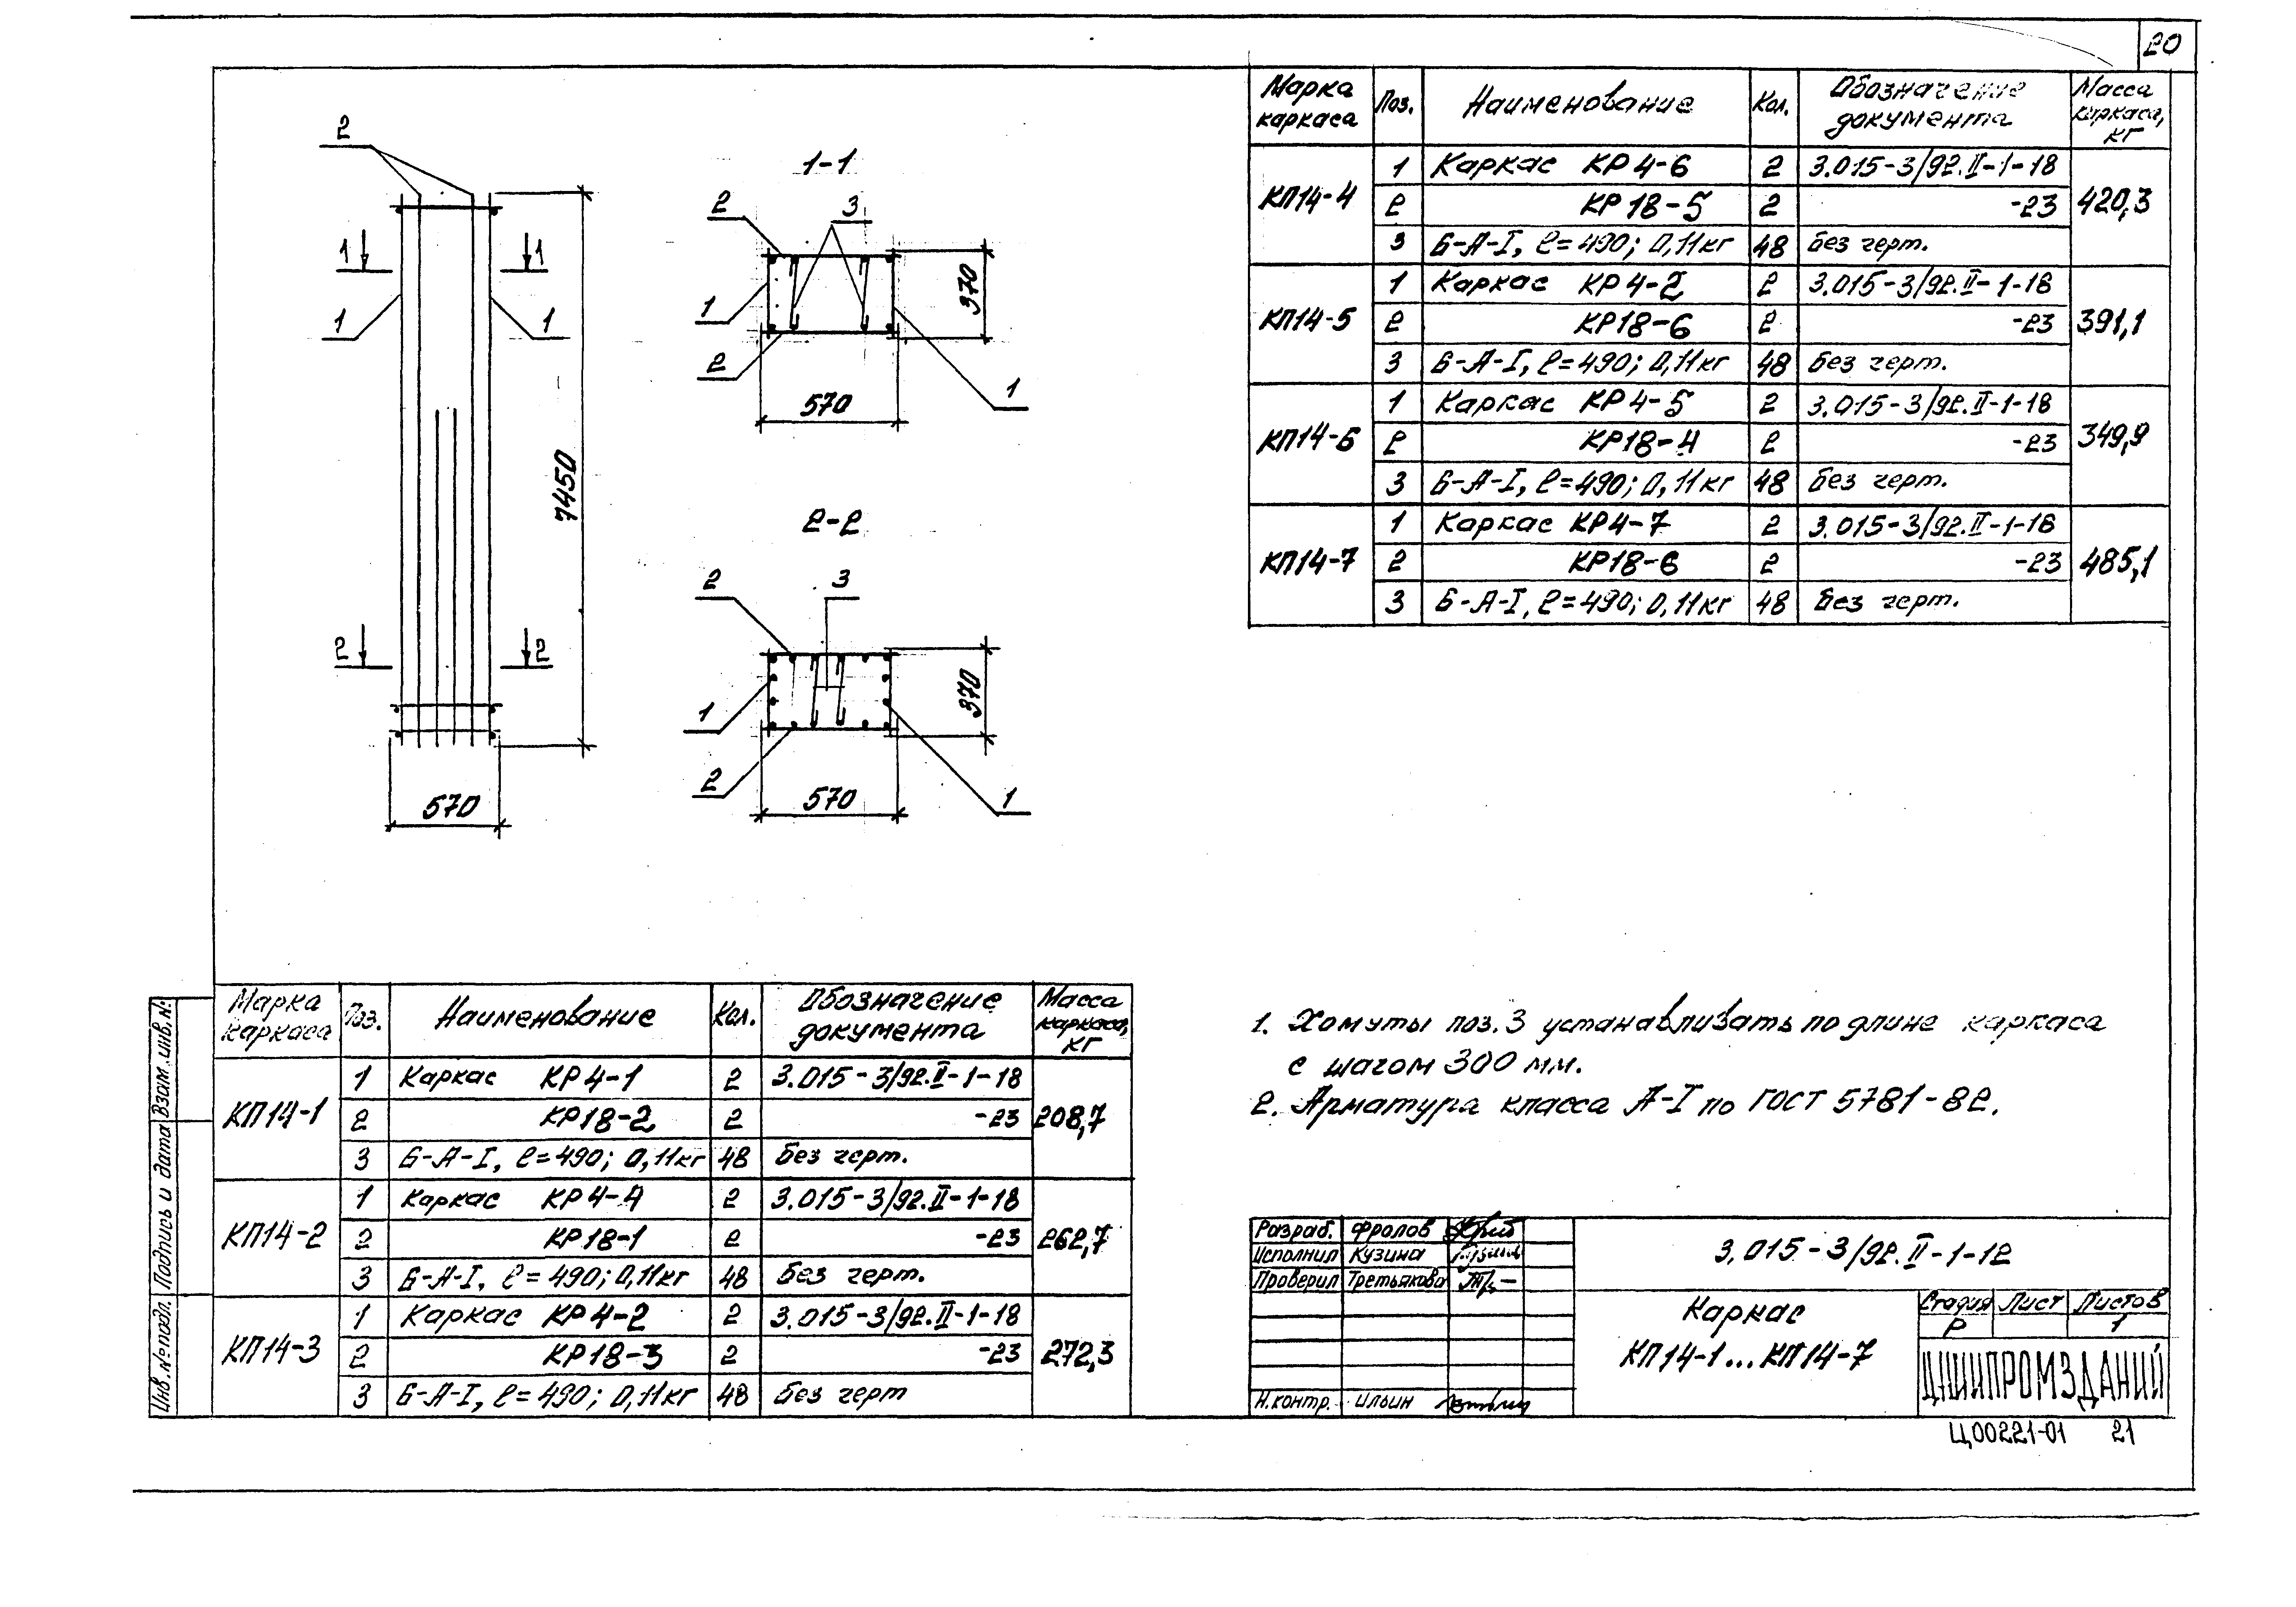 20
2
1 1
1 1
7450
2 2
570
1-1
2 3
1
2
370
570
1
2-2
2 3
1
2
370
570
1
Марка каркаса Поз. Наименование Кол. Обозначение документа Масса каркаса, кг
КП14-4 420,3
1 Каркас КР4-6 2 3.015-3/92.II-1-18
2 КР18-5 2 -23
3 6-А-I, ℓ=490; 0,11кг 48 Без черт.
КП14-5 391,1
1 Каркас КР4-2 2 3.015-3/92.II-1-18
2 КР18-6 2 -23
3 6-А-I, ℓ=490; 0,11кг 48 Без черт.
КП14-6 349,9
1 Каркас КР4-5 2 3.015-3/92.II-1-18
2 КР18-4 2 -23
3 6-А-I, ℓ=490; 0,11кг 48 Без черт.
КП14-7 485,1
1 Каркас КР4-7 2 3.015-3/92.II-1-18
2 КР18-6 2 -23
3 6-А-I, ℓ=490; 0,11кг 48 Без черт.
Марка каркаса Поз. Наименование Кол. Обозначение документа Масса каркаса, кг
КП14-1 208,7
1 Каркас КР4-1 2 3.015-3/92.II-1-18
2 КР18-2 2 -23
3 6-А-I, ℓ=490; 0,11кг 48 Без черт.
КП14-2 262,7
1 Каркас КР4-4 2 3.015-3/92.II-1-18
2 КР18-1 2 -23
3 6-А-I, ℓ=490; 0,11кг 48 Без черт.
КП14-3 272,3
1 Каркас КР4-2 2 3.015-3/92.II-1-18
2 КР18-3 2 -23
3 6-А-I, ℓ=490; 0,11кг 48 Без черт
1. Хомуты поз. 3 устанавливать по длине каркаса
с шагом 300 мм.
2. Арматура класса А-I по ГОСТ 5781-82.
Взам. инв. №
Подпись и дата
Инв. № подл.
Разраб. Фролов
Исполнил Кузина
Проверил Третьякова
Н. контр. Ильин
3.015-3/92.II-1-12
Каркас
КП14-1...КП14-7
Стадия Лист Листов
Р 1
ЦНИИПРОМЗДАНИЙ
Ц00221-01 21